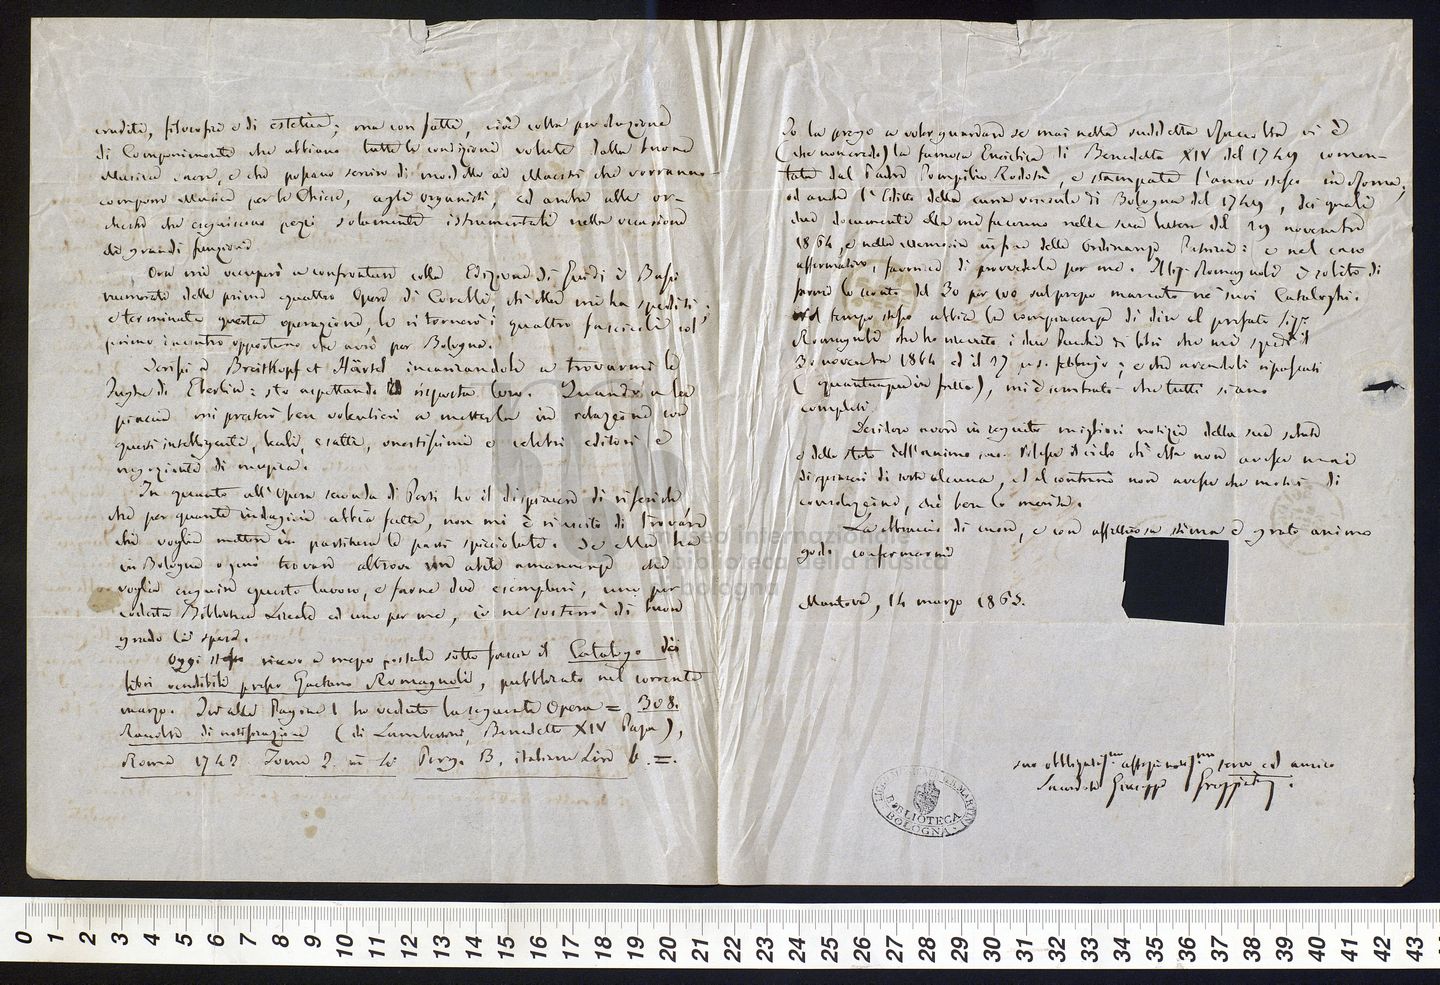 erudite, filosofiche e di estetica; ma con fatti, cioè colla produzione
di Componimenti che abbiano tutte le condizioni volute dalla buona
Musica sacra, e che possano servire di modello ai Maestri che vorranno
comporre Musica per le Chiese, agli organisti, ed anche alle or-
chestre che eseguiscono pezzi solamente istrumentali nelle occasioni
di grandi funzioni.
Ora mi occuperò a confrontare colla Edizione di Guidi i Bassi
numerati delle prime quattro Opere di Corelli, ch'Ella mi ha spediti;
e terminata questa operazione, le ritornerò i quattro fascicoli col
primo incontro opportuno che avrò per Bologna.
Scrissi a Breitkopf et Härtel incaricandole a trovarmi le
Fughe di Eberlin: sto aspettando la risposta loro. Quando a lei
piaccia mi presterò ben volentieri a metterla in relazione con
questi intelligenti, leali, esatti, onestissimi e celebri editori e
negozianti di musica.
In quanto all'Opera seconda di Porti ho il dispiacere di riferirle
che per quante indagini abbia fatte, non mi è riuscito di trovare
chi voglia mettere in partitura le parti spicciolate. Se Ella ha
in Bologna o può trovare altrove un abile amanuense che
voglia eseguire questo lavoro, e farne due esemplari, uno per
codesta Biblioteca Liceale ed uno per me, io ne sosterrò di buon
grado la spesa.
Oggi stesso ricevo a mezzo postale sotto fascia il Catalogo dei
libri vendibili presso Gaetano Romagnoli, pubblicato nel corrente
marzo. In alla Pagina 1 ho veduto la seguente Opera = 308.
Raccolta di notificazioni (di Lambertini, Benedetto XIV Papa),
Roma 1742 Tomi 2. in Perg. B. italiane Lire 6. =.
Io la prego a voler guardare se mai nella suddetta Raccolta vi è
(che non credo) la famosa Enciclica di Benedetto XIV del 1749 comen-
tata dal Padre Pompilio Rodotà, e stampata l'anno stesso in Roma;
ed anche l'Editto della curia vescovile di Bologna del 1749, dei quali
due documenti ella mi fa cenno nella sua lettera del 29 novembre
1864, e nella Memoria in fine delle Ordinanze: e nel caso
affermativo, favorisca di provvederla per me. Il Sig. Romagnoli è solito di
farmi lo sconto del 30 per 100 sul prezzo marcato ne' suoi Cataloghi.
Nel tempo stesso abbia la compiacenza di dire al prefato Sigr
Romagnoli che ho ricevuto i due Pacchi di libri che mi spedì il
30 novembre 1864 ed il 27 p.s. febbrajo; e che avendoli ripassati
(quantunque in fretta), mi è sembrato che tutti siano
completi.
Desidero avere in seguito migliori notizie della sua salute
e dello stato dell'animo suo. Volesse il cielo ch'ella non avesse mai
dispiaceri di sorte alcuna, ed al contrario non avesse che motivi di
consolazione, chè ben lo merita.
La abbraccio di cuore, e con affettuosa stima e grato animo
godo confermarmi
Mantova, 14 marzo 1865.
suo obbligatissmo affezionatissmo servo ed amico
Sacerdote Giuseppe Greggiati.
LICEO MUSICALE G.B. MARTINI
BIBLIOTECA
BOLOGNA
museo internazionale
biblioteca della musica
bologna
0 1 2 3 4 5 6 7 8 9 10 11 12 13 14 15 16 17 18 19 20 21 22 23 24 25 26 27 28 29 30 31 32 33 34 35 36 37 38 39 40 41 42 43